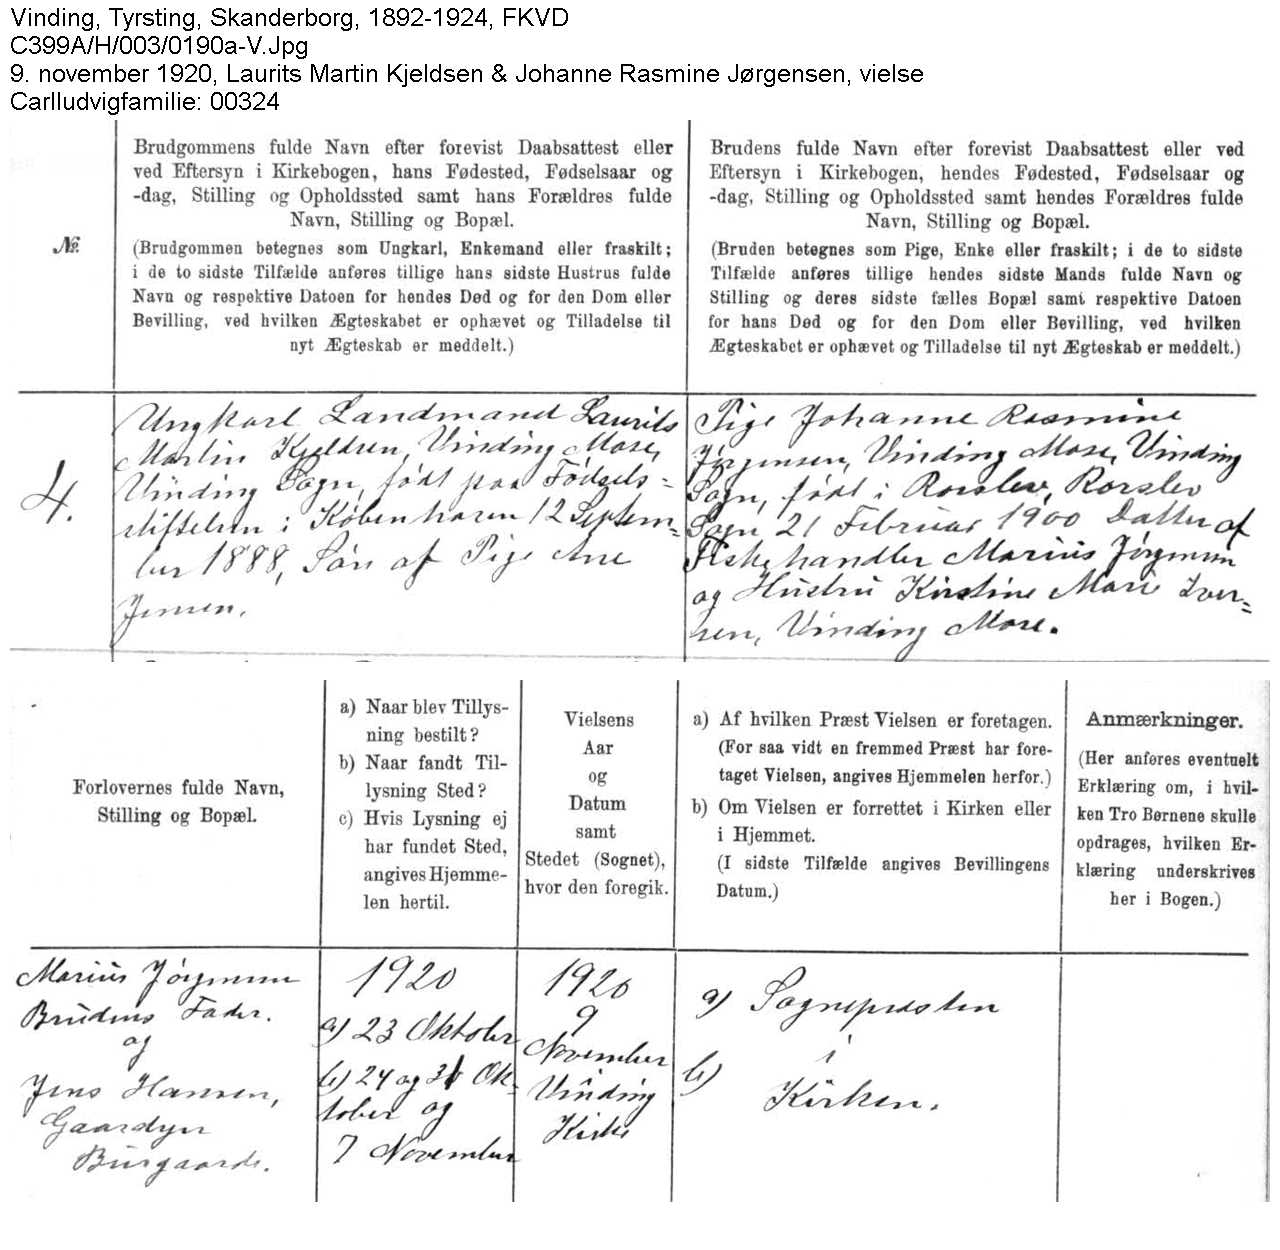 Vinding, Tyrsting, Skanderborg, 1892-1924, FKVD
C399A/H/003/0190a-V.Jpg
9. november 1920, Laurits Martin Kjeldsen & Johanne Rasmine Jørgensen, vielse
Carlludvigfamilie: 00324
№.
Brudgommens fulde Navn efter forevist Daabsattest eller
ved Eftersyn i Kirkebogen, hans Fødested, Fødselsaar og
-dag, Stilling og Opholdssted samt hans Forældres fulde
Navn, Stilling og Bopæl.
(Brudgommen betegnes som Ungkarl, Enkemand eller fraskilt;
i de to sidste Tilfælde anføres tillige hans sidste Hustrus fulde
Navn og respektive Datoen for hendes Død og for den Dom eller
Bevilling, ved hvilken Ægteskabet er ophævet og Tilladelse til
nyt Ægteskab er meddelt.)
Brudens fulde Navn efter forevist Daabsattest eller ved
Eftersyn i Kirkebogen, hendes Fødested, Fødselsaar og
-dag, Stilling og Opholdssted samt hendes Forældres fulde
Navn, Stilling og Bopæl.
(Bruden betegnes som Pige, Enke eller fraskilt; i de to sidste
Tilfælde anføres tillige hendes sidste Mands fulde Navn og
Stilling og deres sidste fælles Bopæl samt respektive Datoen
for hans Død og for den Dom eller Bevilling, ved hvilken
Ægteskabet er ophævet og Tilladelse til nyt Ægteskab er meddelt.)
4.
Ungkarl Landmand Laurits
Martin Kjeldsen, Vinding Mose,
Vinding Sogn, født paa Fødsels=
stiftelsen i København 12 Septem=
ber 1888, Søn af Pige Ane
Jensen.
Pige Johanne Rasmine
Jørgensen, Vinding Mose, Vinding
Sogn, født i Rorslev, Rorslev
Sogn 21 Februar 1900 Datter af
Fiskehandler Marius Jørgensen
og Hustru Kirstine Marie Iver=
sen, Vinding Mose.
Forlovernes fulde Navn,
Stilling og Bopæl.
a) Naar blev Tillys-
ning bestilt?
b) Naar fandt Til-
lysning Sted?
c) Hvis Lysning ej
har fundet Sted,
angives Hjemme-
len hertil.
Vielsens
Aar
og
Datum
samt
Stedet (Sognet),
hvor den foregik.
a) Af hvilken Præst Vielsen er foretagen.
(For saa vidt en fremmed Præst har fore-
taget Vielsen, angives Hjemmelen herfor.)
b) Om Vielsen er forrettet i Kirken eller
i Hjemmet.
(I sidste Tilfælde angives Bevillingens
Datum.)
Anmærkninger.
(Her anføres eventuelt
Erklæring om, i hvil-
ken Tro Børnene skulle
opdrages, hvilken Er-
klæring underskrives
her i Bogen.)
Marius Jørgensen
Brudens Fader.
og
Jens Hansen,
Gaardejer
Burgaarde.
1920
a) 23 Oktober
b) 24 og 31 Ok-
tober og
7 November
1920
9
November
Vinding
Kirke
a) Sognepræsten
b) i
Kirken.